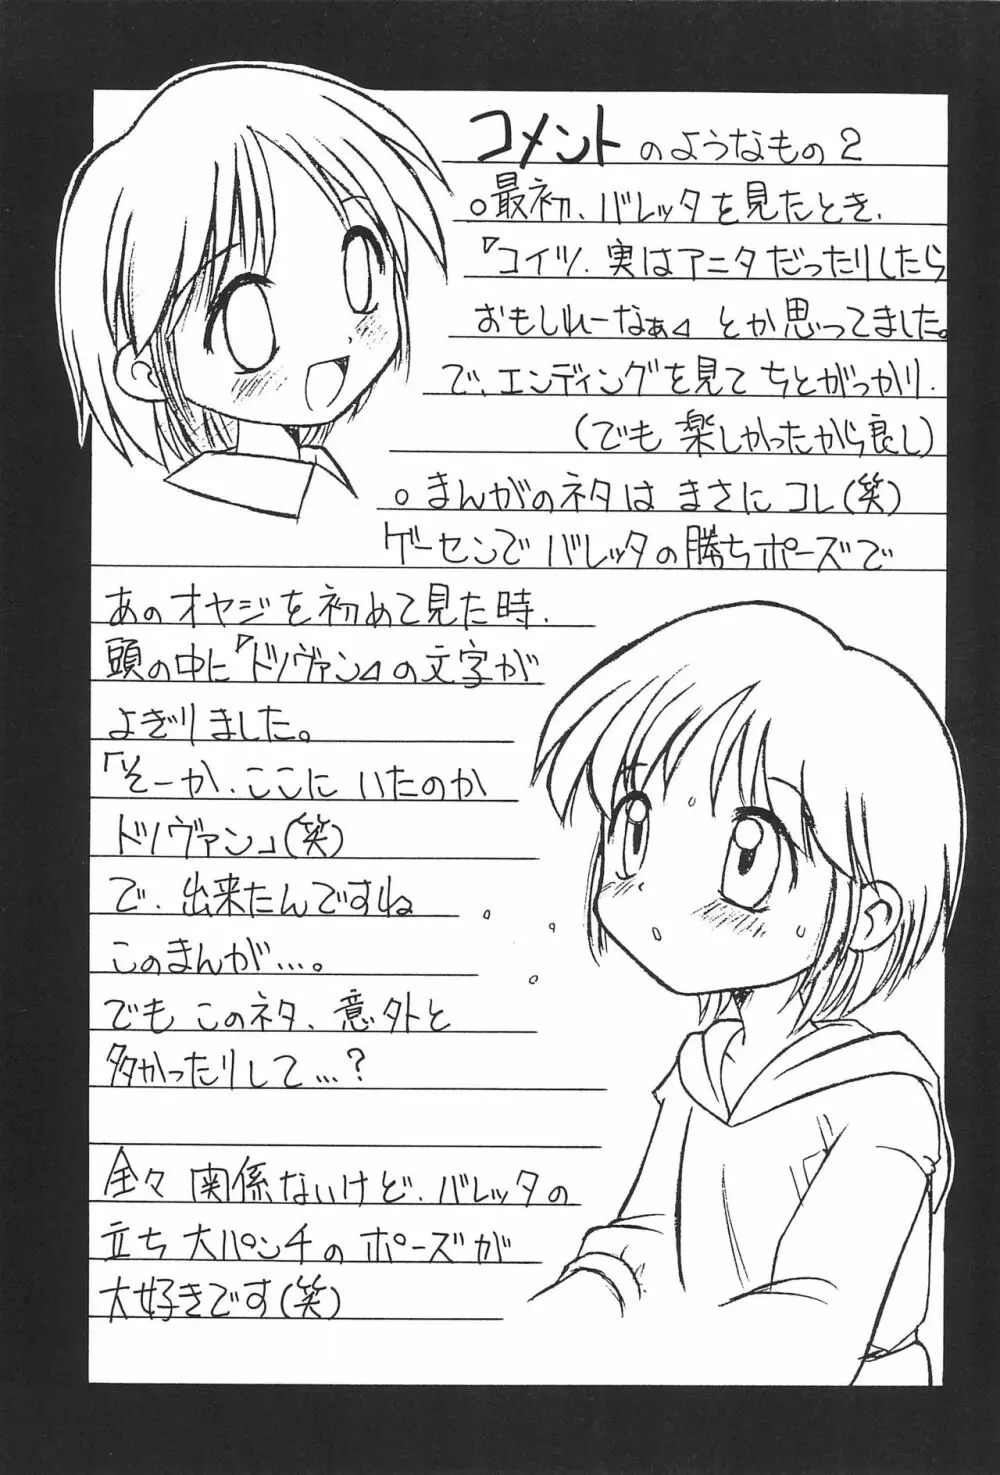 コメントのようなもの2
○最初、バレッタを見たとき、
『コイツ、実はアニタだったりしたら
おもしれーなぁ』とか思ってました。
で、エンディングを見てちとがっかり。
(でも楽しかったから良し)
○まんがのネタはまさにコレ(笑)
ゲーセンでバレッタの勝ちポーズで
あのオヤジを初めて見た時、
頭の中に『ドノヴァン』の文字が
よぎりました。
「そーか、ここにいたのか
ドノヴァン」(笑)
で、出来たんですね
このまんが…。
でもこのネタ、意外と
多かったりして…?
全々関係ないけど、バレッタの
立ち大パンチのポーズが
大好きです(笑)